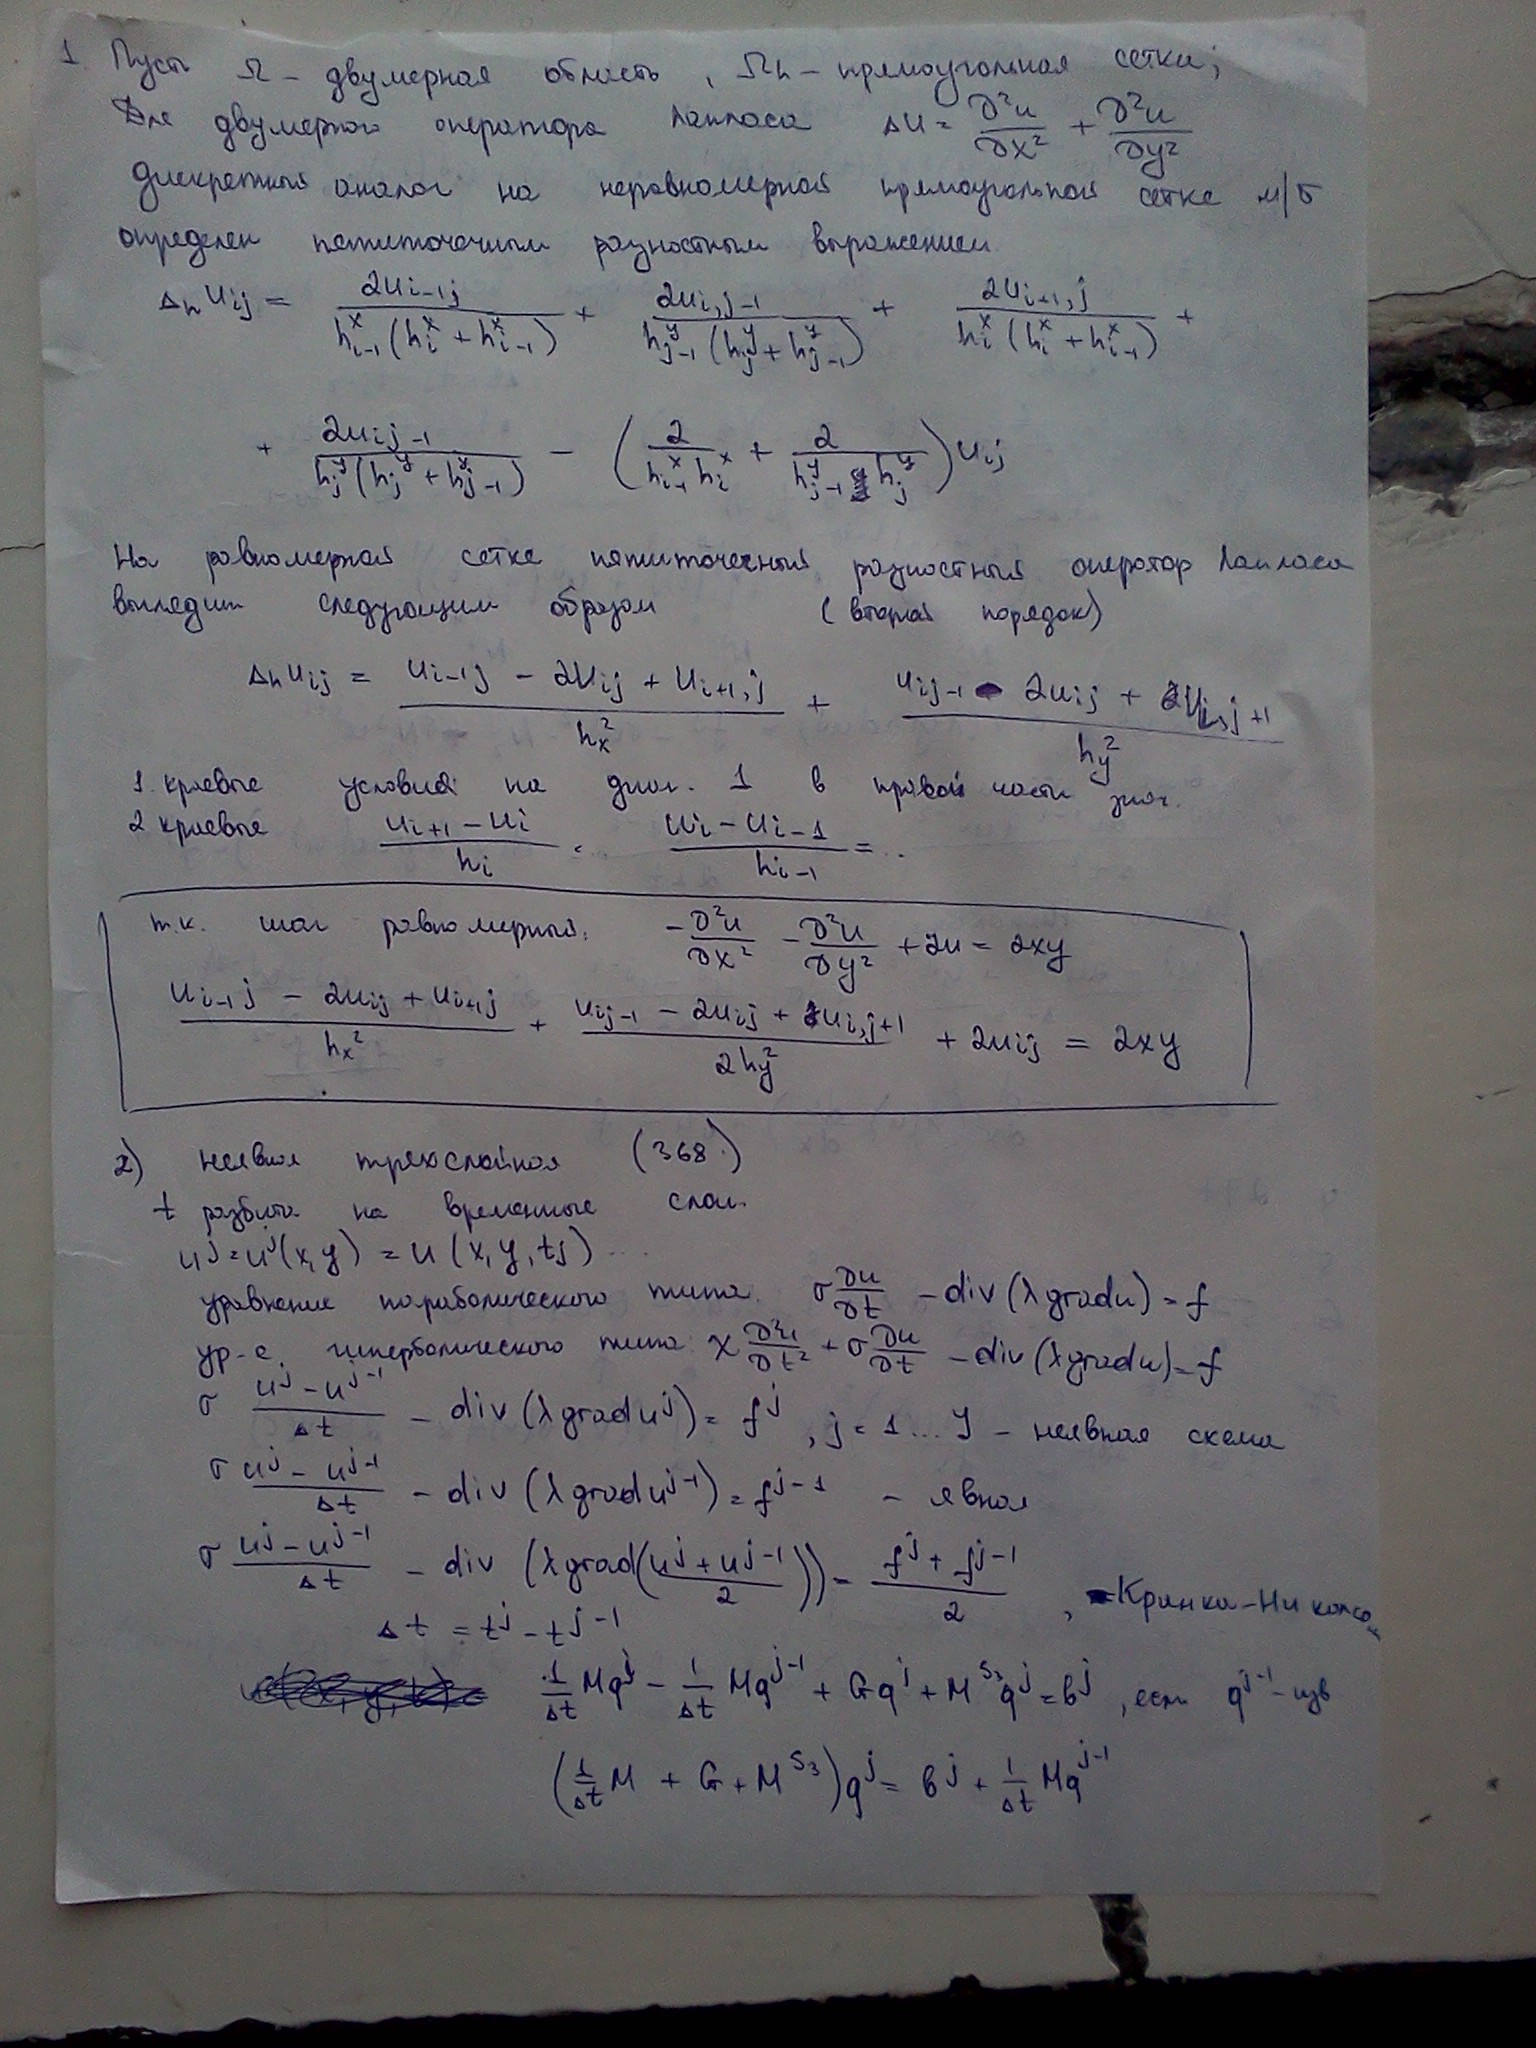 1. Пусть Ω – двумерная область, Ωh – прямоугольная сетка;
Для двумерного оператора Лапласа Δu = ∂²u/∂x² + ∂²u/∂y²
дискретный аналог на неравномерной прямоугольной сетке м/б
определен пятиточечным разностным выражением
Δh uij = 2ui-1j / (h^x_{i-1}(h^x_i + h^x_{i-1})) + 2ui,j-1 / (h^y_{j-1}(h^y_j + h^y_{j-1})) + 2ui+1,j / (h^x_i(h^x_i + h^x_{i-1})) +
+ 2uij-1 / (h^y_j(h^y_j + h^y_{j-1})) – (2/(h^x_{i-1} h^x_i) + 2/(h^y_{j-1} h^y_j)) uij
На равномерной сетке пятиточечный разностный оператор Лапласа
выглядит следующим образом (второй порядок)
Δh uij = (ui-1j – 2uij + ui+1,j)/hx² + (uij-1 – 2uij + ui,j+1)/hy²
1. краевые условия на диаг. 1 в правой части знач.
2 краевые (ui+1 – ui)/hi = .. (ui – ui-1)/hi-1 = ..
т.к. шаг равномерный: –∂²u/∂x² – ∂²u/∂y² + 2u = 2xy
(ui-1j – 2uij + ui+1j)/hx² + (uij-1 – 2uij + ui,j+1)/2hy² + 2uij = 2xy
2) неявная трехслойная (368.)
t разбита на временные слои.
u^j = u^j(x,y) = u(x,y,tj) ...
уравнение параболического типа σ ∂u/∂t – div(λ grad u) = f
ур-е. гиперболического типа χ ∂²u/∂t² + σ ∂u/∂t – div(λ grad u) = f
σ (u^j – u^{j-1})/Δt – div(λ grad u^j) = f^j, j = 1...J – неявная схема
σ (u^j – u^{j-1})/Δt – div(λ grad u^{j-1}) = f^{j-1} – явная
σ (u^j – u^{j-1})/Δt – div(λ grad((u^j + u^{j-1})/2)) = (f^j + f^{j-1})/2, – Кранка-Николсо
Δt = t^j – t^{j-1}
1/Δt Mq^j – 1/Δt Mq^{j-1} + Gq^j + M^{S3}q^j = b^j, если q^{j-1} – изв
(1/Δt M + G + M^{S3})q^j = b^j + 1/Δt Mq^{j-1}